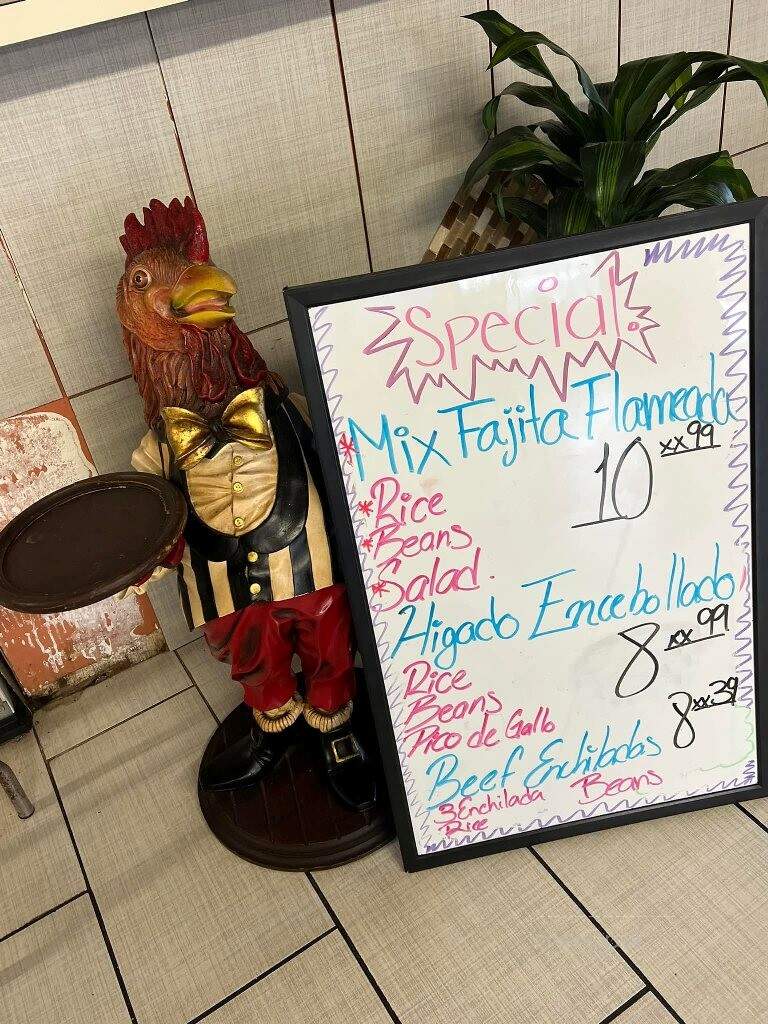 Special!
*Mix Fajita Flameada
10 xx99
*Rice
*Beans
*Salad.
Higado Encebollado
8 xx99
Rice
Beans
Pico de Gallo
8 xx39
Beef Enchiladas
3 Enchilada Beans
Rice